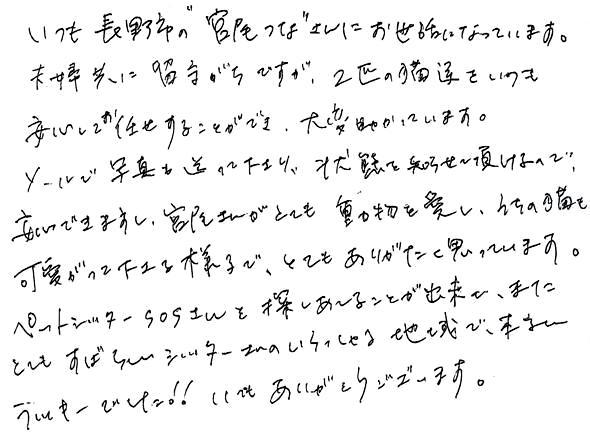 いつも長野市の"宮尾つな"さんにお世話になっています。
夫婦共に留守がちですが、2匹の猫達をいつも
安心してお任せすることができ、大変助かっています。
メールで写真も送って下さり、状態を知らせて頂けるので、
安心できますし、宮尾さんがとても動物を愛し、うちの猫も
可愛がって下さる様子で、とてもありがたく思っています。
ペットシッターSOSさんを探しあてることが出来て、また
とてもすばらしいシッターさんのいらっしゃる地域で、本当に
ラッキーでした!! いつもありがとうございます。